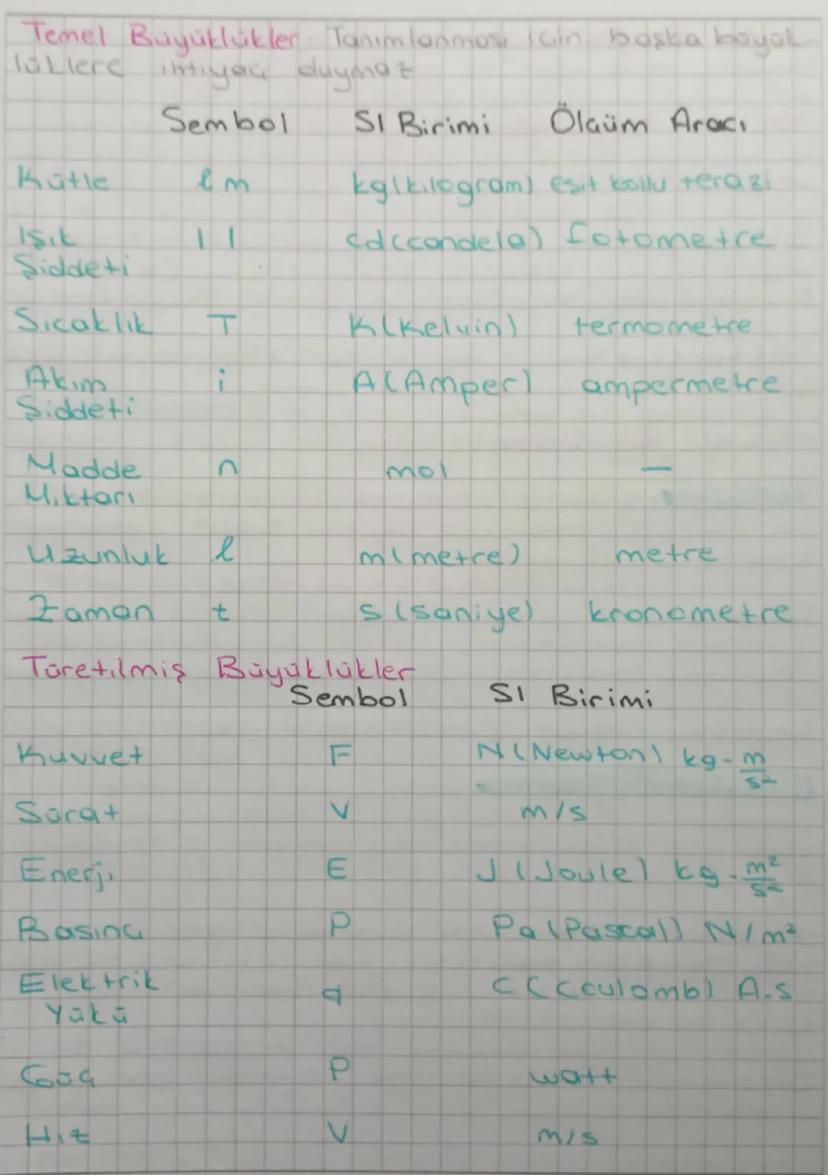 Temel Büyüklükler Tanımlanması için başka büyük
lüklere ihtiyaç duymaz
Sembol SI Birimi Ölçüm Aracı
Kütle l m kg(kilogram) eşit kollu terazi
Işık I I cd(candela) fotometre
Şiddeti
Sıcaklık T K(Kelvin) termometre
Akım i A(Amper) ampermetre
Şiddeti
Madde n mol —
Miktarı
Uzunluk l m(metre) metre
Zaman t s(saniye) kronometre
Türetilmiş Büyüklükler
Sembol SI Birimi
Kuvvet F N(Newton) kg.m/s²
Sürat V m/s
Enerji E J(Joule) kg.m²/s²
Basınç P Pa(Pascal) N/m²
Elektrik q C(Coulomb) A.s
Yükü
Güç P watt
Hız V m/s